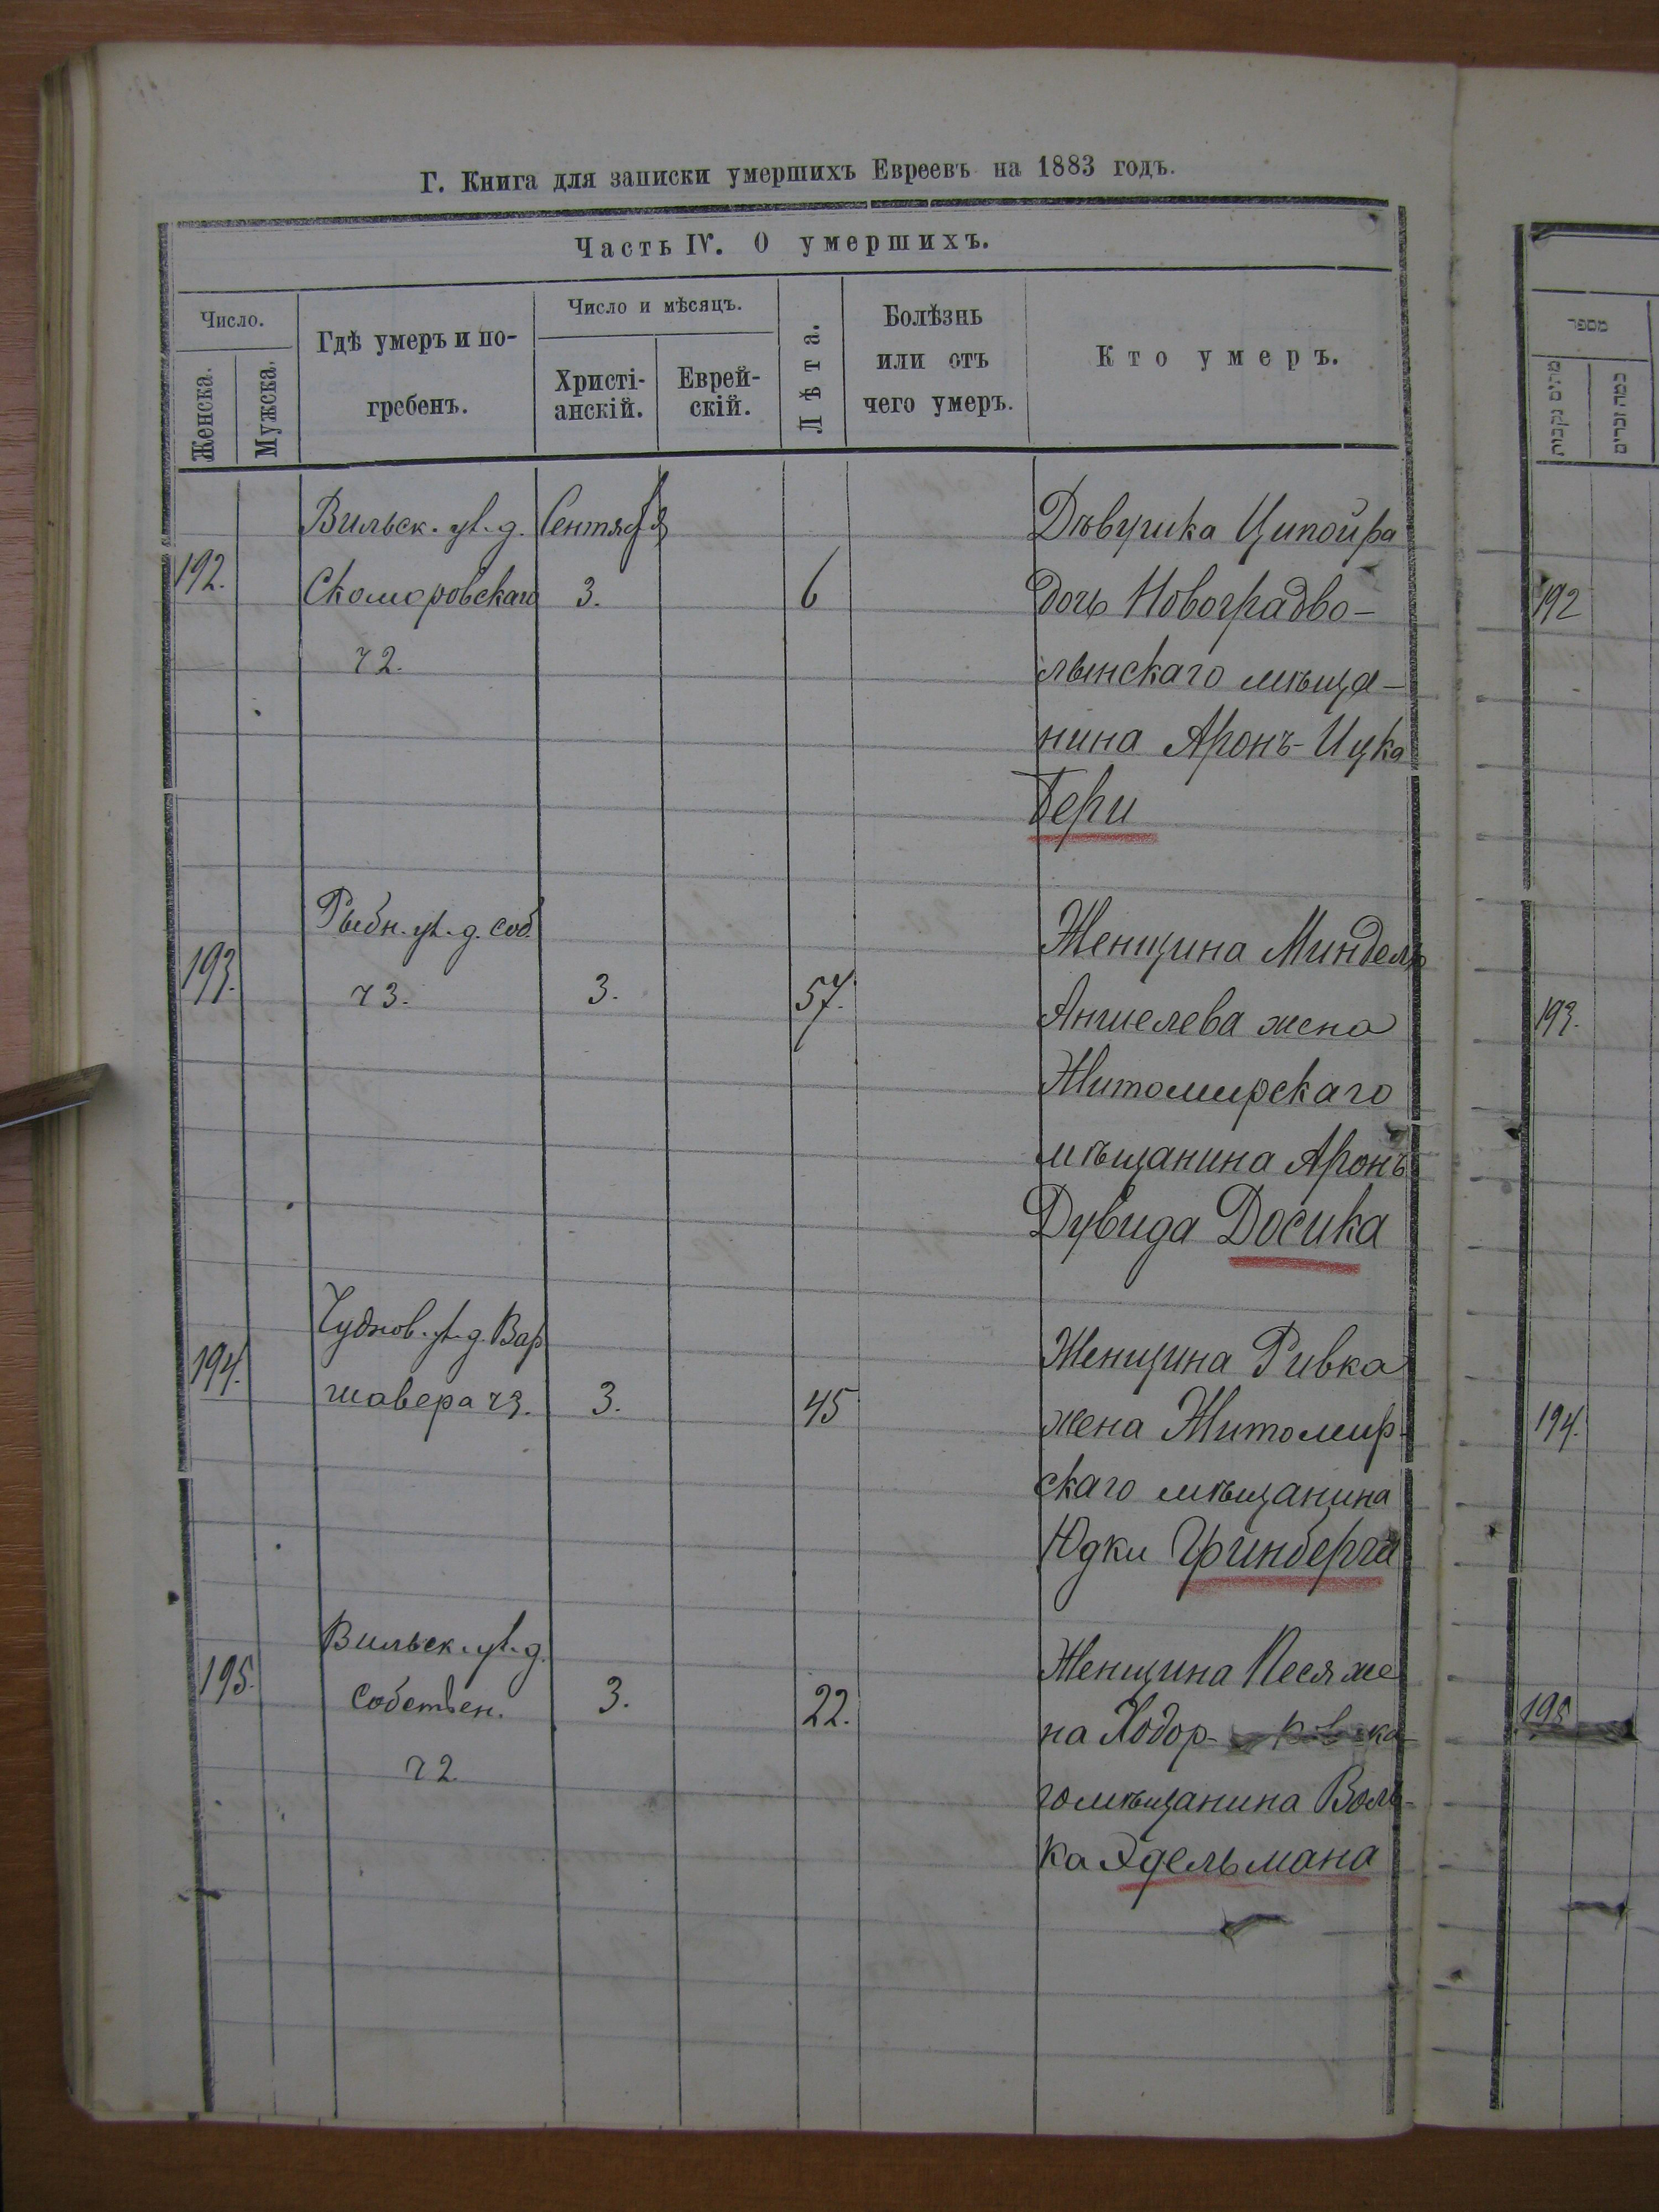 Г. Книга для записки умершихъ Евреевъ на 1883 годъ.
Часть IV. О умершихъ.
Число.
Женска.
Мужска.
Гдѣ умеръ и по-
гребенъ.
Число и мѣсяцъ.
Христі-
анскій.
Еврей-
скій.
Лѣта.
Болѣзнь
или отъ
чего умеръ.
Кто умеръ.
192.
Вильск. ул. д.
Скоморовскаго
ч 2.
Сентября
3.
6
Дѣвушка Ципойра
дочь Новоградво-
лынскаго мѣща-
нина Аронъ-Ицка
Бери
193.
Рыбн. ул. д. соб.
ч 3.
3.
57.
Женщина Миндель
Аншелева жена
Житомирскаго
мѣщанина Аронъ
Дувида Досика
194.
Чуднов. ул. д. Вар
шавера ч 3.
3.
45
Женщина Ривка
жена Житомир-
скаго мѣщанина
Юдки Гринберга
195.
Вильск. ул. д.
Собствен.
ч 2
3.
22.
Женщина Песя же
на Ходор- ка-
го мѣщанина Воль-
ка Эдельмана
מספר
מתים נקבות
כמה זכרים
192
193.
194.
195